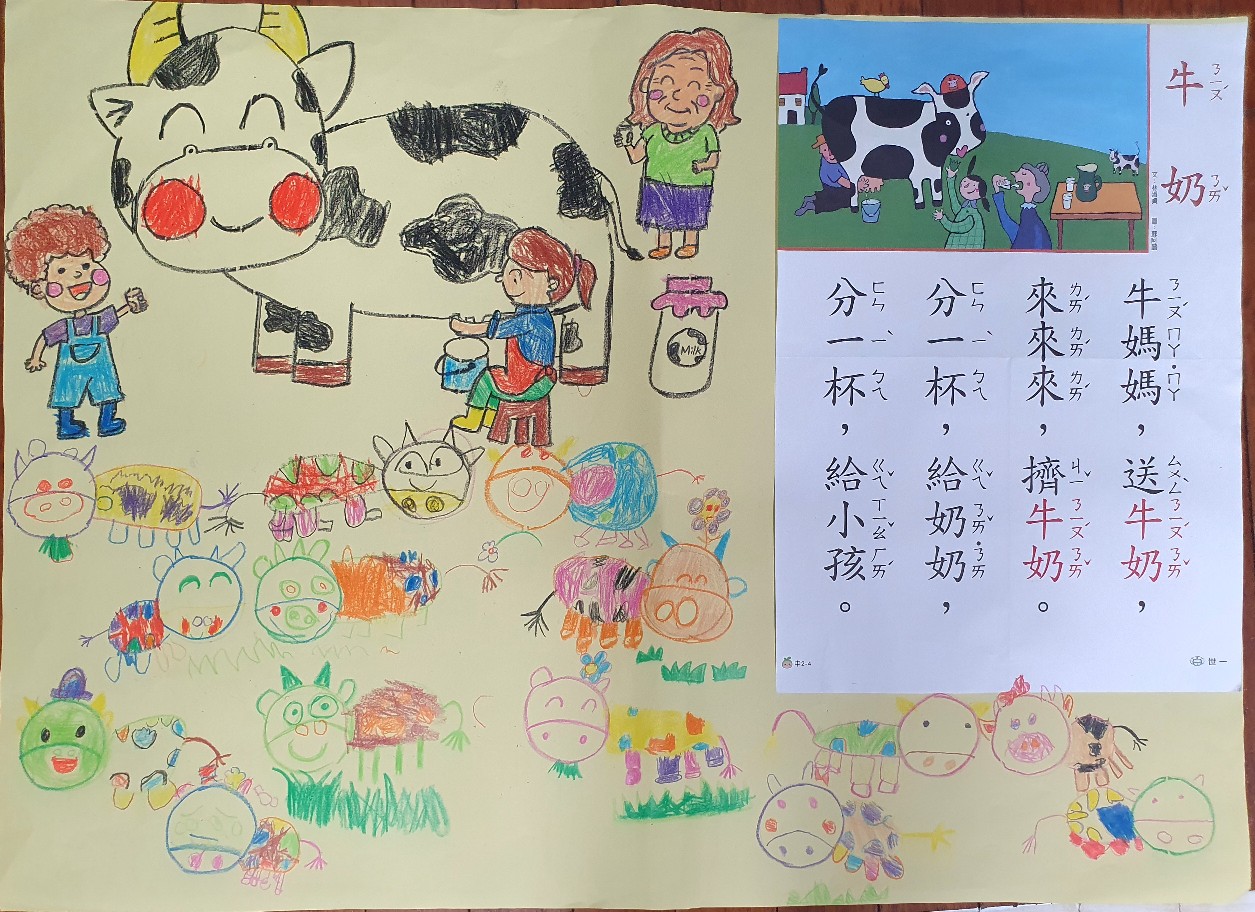 牛奶
牛媽媽,送牛奶,
來來來,擠牛奶。
分一杯,給奶奶,
分一杯,給小孩。
中2-4
世一
Milk